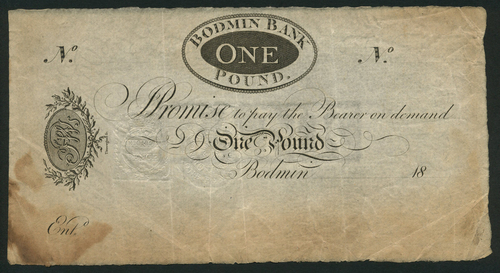 BODMIN BANK
ONE
POUND.
No. No.
I Promise to pay the Bearer on demand
One Pound
Bodmin 18
Entd